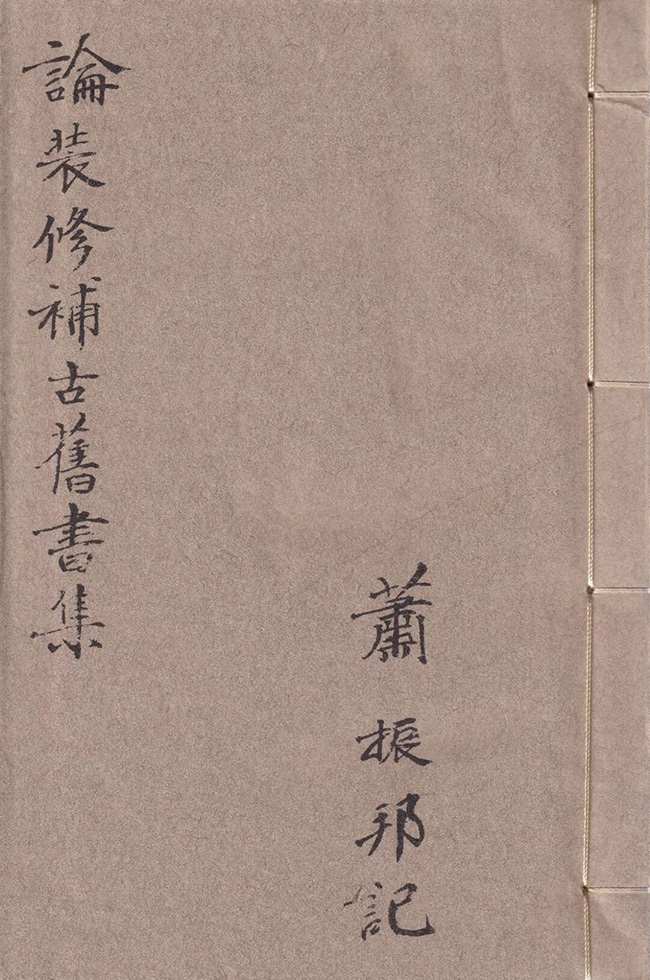 論装修補古舊書集
蕭振邦記